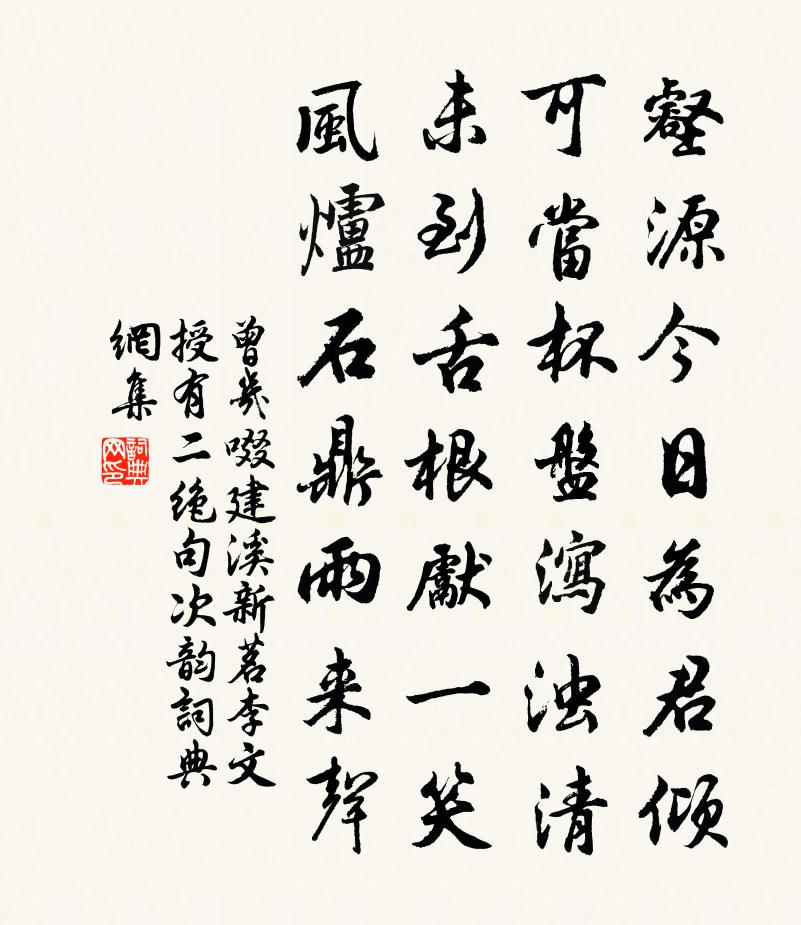 壑源今日為君傾
可當杯盤瀉浊清
未到舌根獻一笑
風爐石鼎雨来聲
曾幾啜建溪新茗李文
授有二绝句次韵詞典
網集
詞典网印